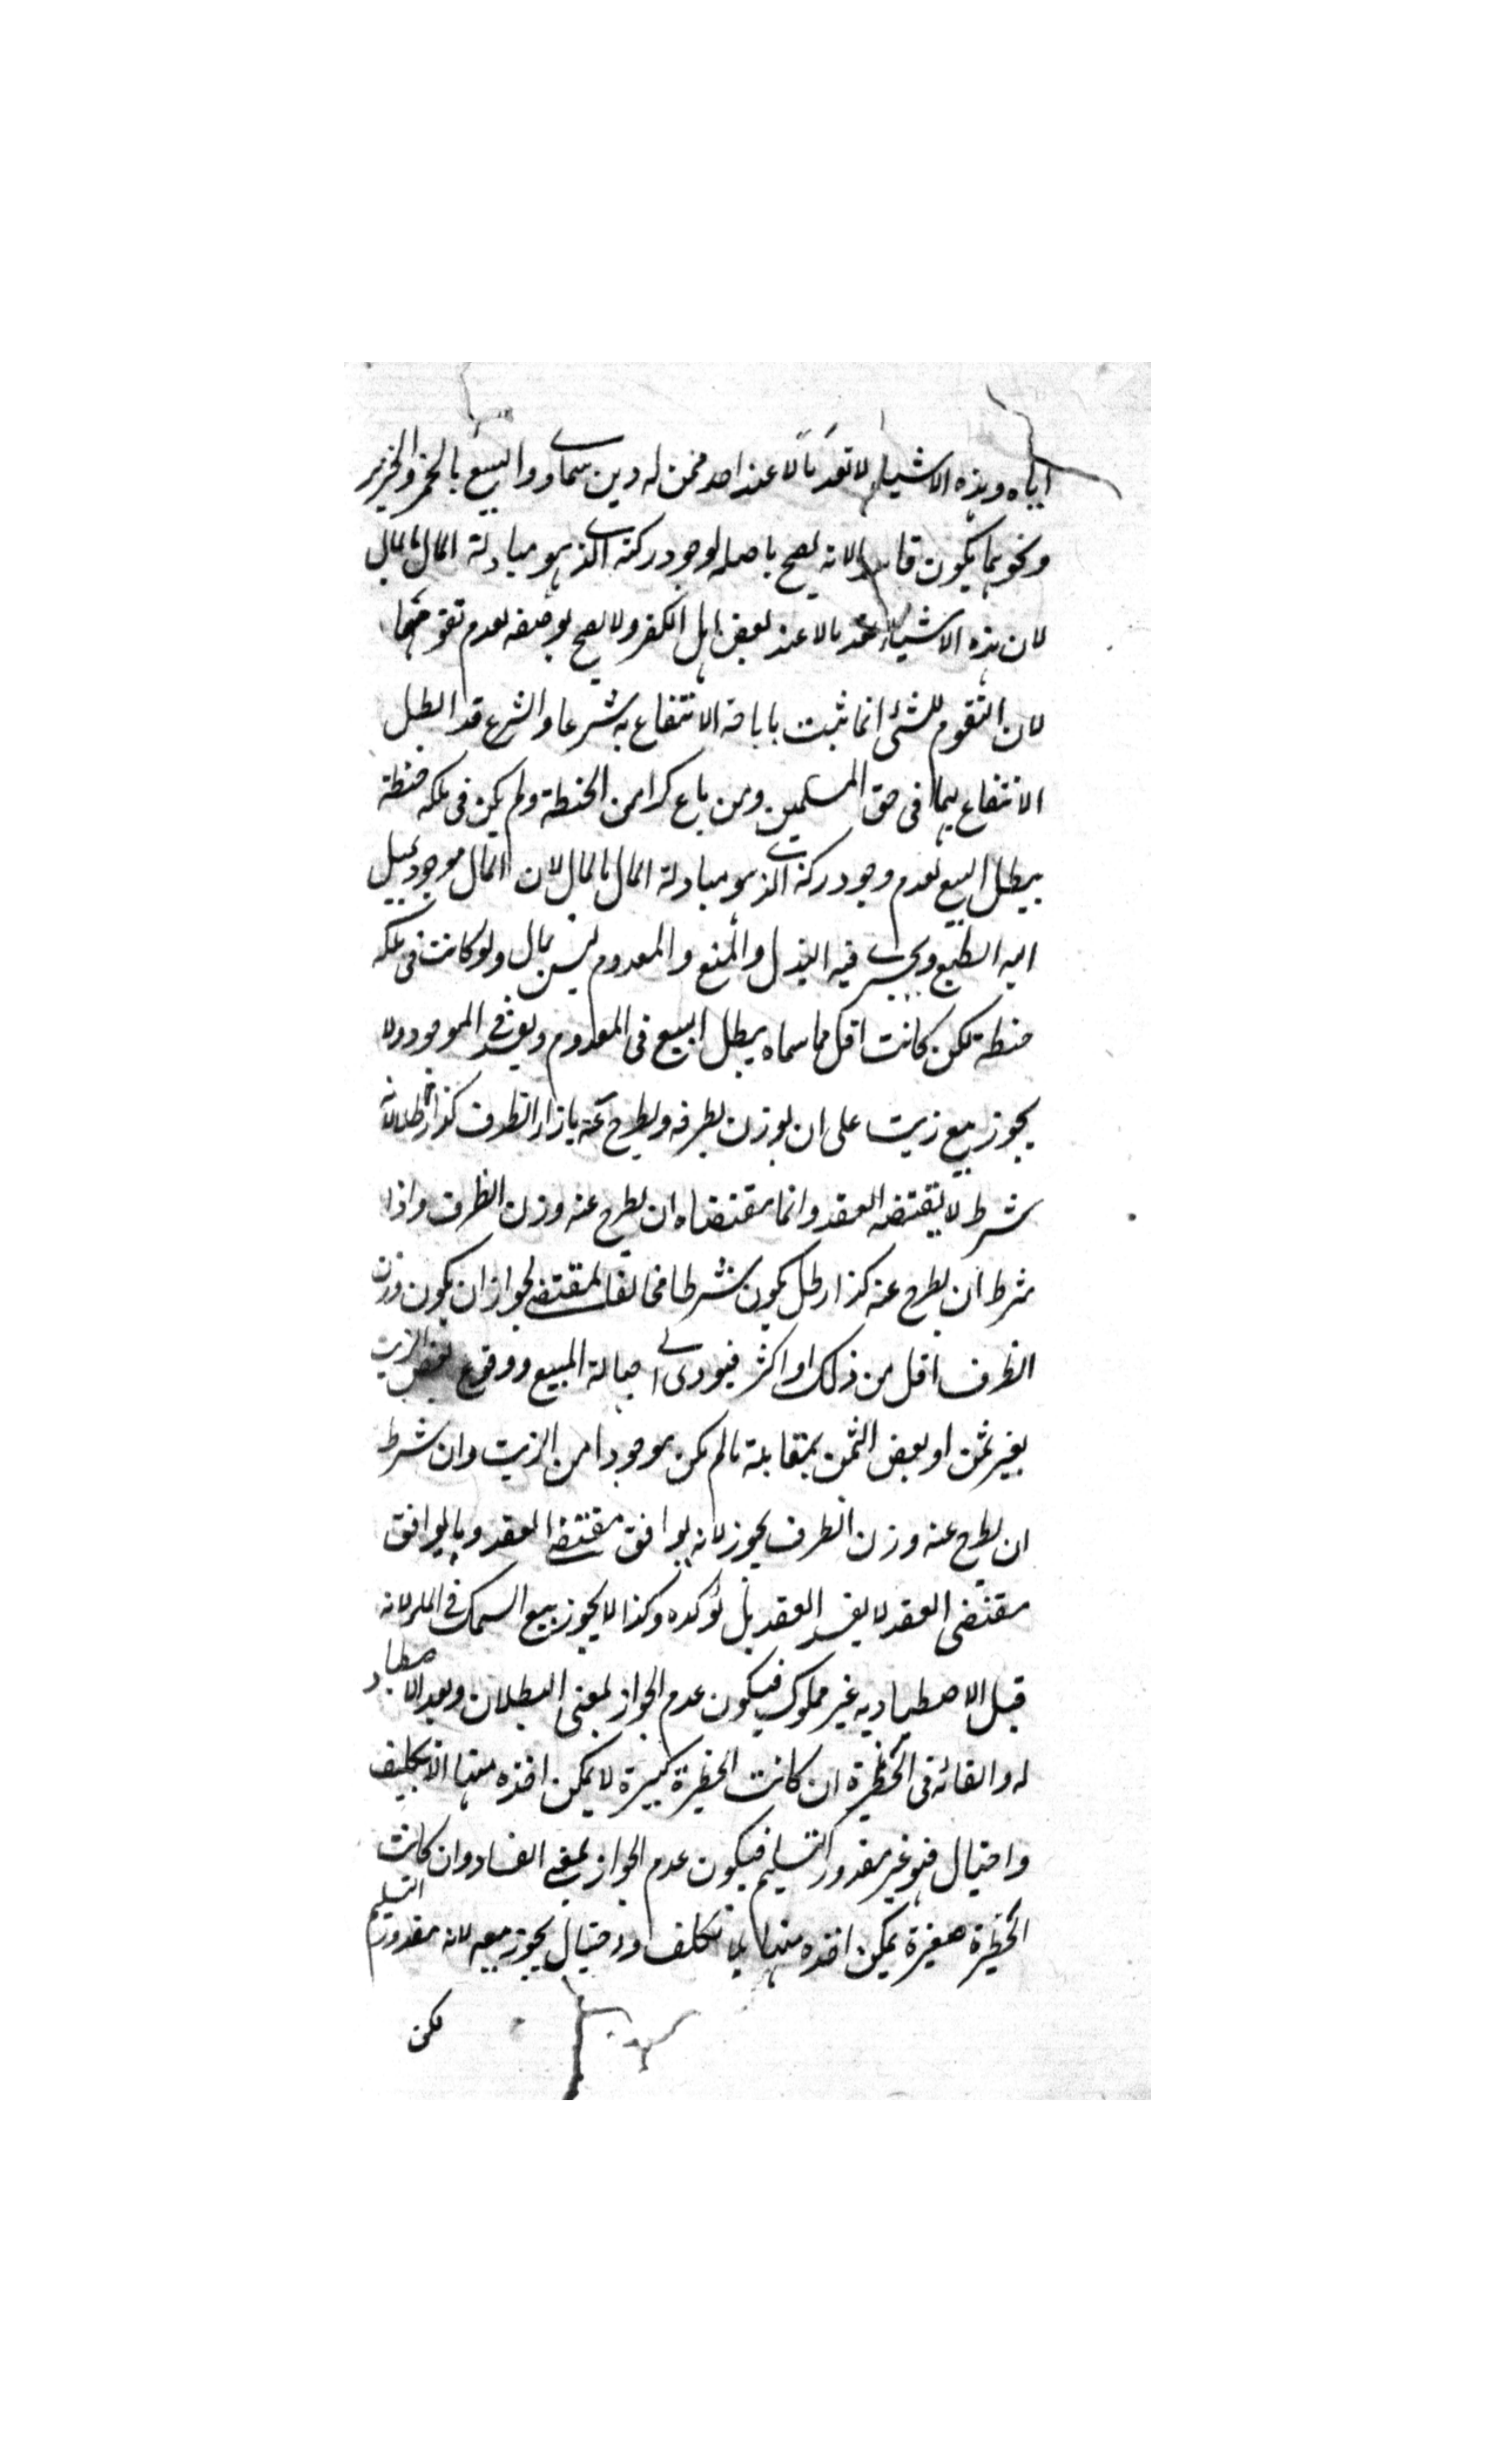 اياه وهذه الاشياء لا تعد مالا عند احد ممن له دين سماوي والبيع بالخمر والخنزير
ونحوهما يكون فاسدا لانه يصح باصله لوجود ركنه الذي هو مبادلة المال بالمال
لان هذه الاشياء تعد مالا عند بعض اهل الكفر ولا يصح بوصفه لعدم تقومهما
لان التقوم للشئ انما يثبت باباحة الانتفاع به شرعا والشرع قد ابطل
الانتفاع بهما فى حق المسلمين ومن باع كرا من الحنطة ولم يكن فى ملكه حنطة
يبطل البيع لعدم وجود ركنه الذي هو مبادلة المال بالمال لان المال موجود يميل
اليه الطبع ويجري فيه البذل والمنع والمعدوم ليس بمال ولو كانت فى ملكه
حنطة لكن كانت اقل مما سماه يبطل البيع فى المعدوم ويفسد فى الموجود ولا
يجوز بيع زيت على ان يوزن بظرفه ويطرح عنه بازاء الظرف كذا رطلا لانه
شرط لا يقتضيه العقد وانما مقتضاه ان يطرح عنه وزن الظرف واذا
شرط ان يطرح عنه كذا رطل يكون شرطا مخالفا لمقتضى لجواز ان يكون وزن
الظرف اقل من ذلك او اكثر فيودى الى جهالة المبيع ووقوع بعض الزيت
بغير ثمن او بعض الثمن بمقابلة ما لم يكن موجودا من الزيت وان شرط
ان يطرح عنه وزن الظرف يجوز لانه يوافق مقتضى العقد وما يوافق
مقتضى العقد لا يفسد العقد بل يؤكده وكذا لا يجوز بيع السمك فى الماء لانه
قبل الاصطياد به غير مملوك فيكون عدم الجواز بمعنى البطلان وبعد الاصطياد
له والقائه فى الحظيرة ان كانت الحظيرة كبيرة لا يمكن اخذه منها الا بتكليف
واحتيال فهو غير مقدور التسليم فيكون عدم الجواز بمعنى الفساد وان كانت
الحظيرة صغيرة يمكن اخذه منها بلا تكلف واحتيال يجوز بيعه لانه مقدور التسليم
لكن